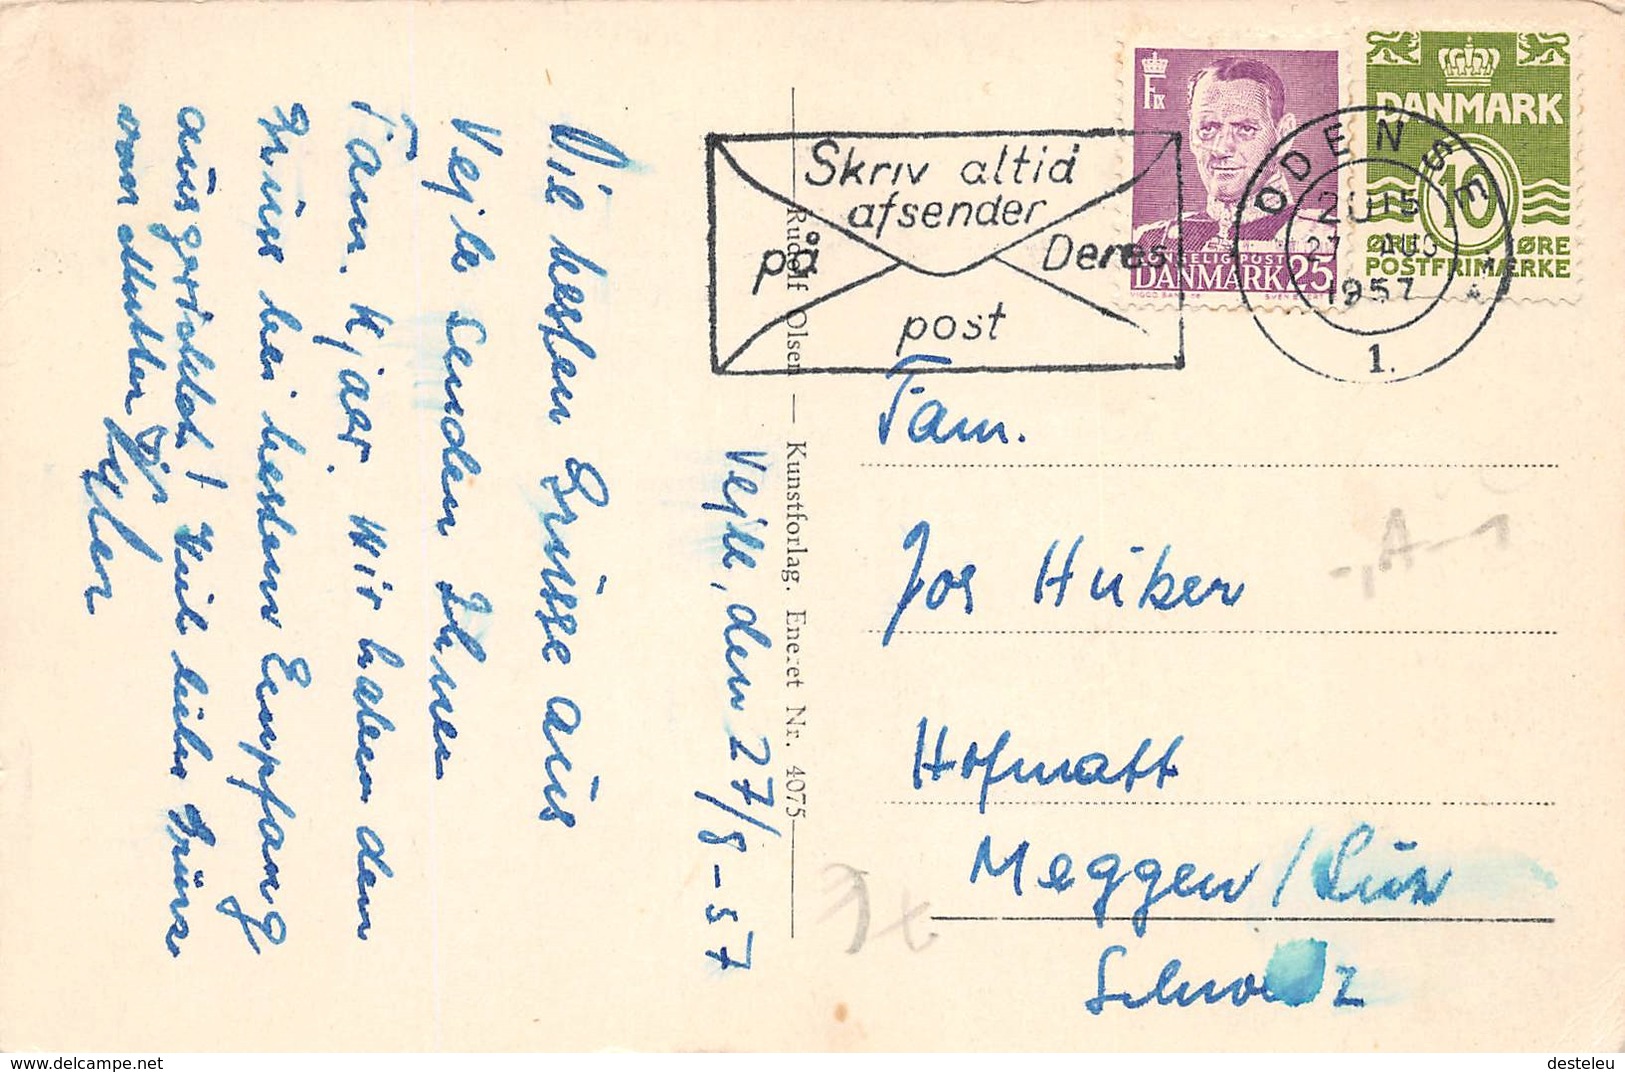 Vejle, den 27/8-57
Die besten Grüsse aus
Vejle senden Ihnen
Fam. Kjaer. Wir haben den
Gruss bei bestem Empfang
ausgerichtet! Viele liebe Grüsse
von Mutter
Rudolf Olsen — Kunstforlag. Eneret Nr. 4075
Skriv altid
afsender
på Deres
post
DANMARK 25
DANMARK
10
ØRE ØRE
POSTFRIMÆRKE
ODENSE
27 AUG
1957
1.
Fam.
Jos Huber
Hofmatt
Meggen / Luz
Schweiz
desteleu